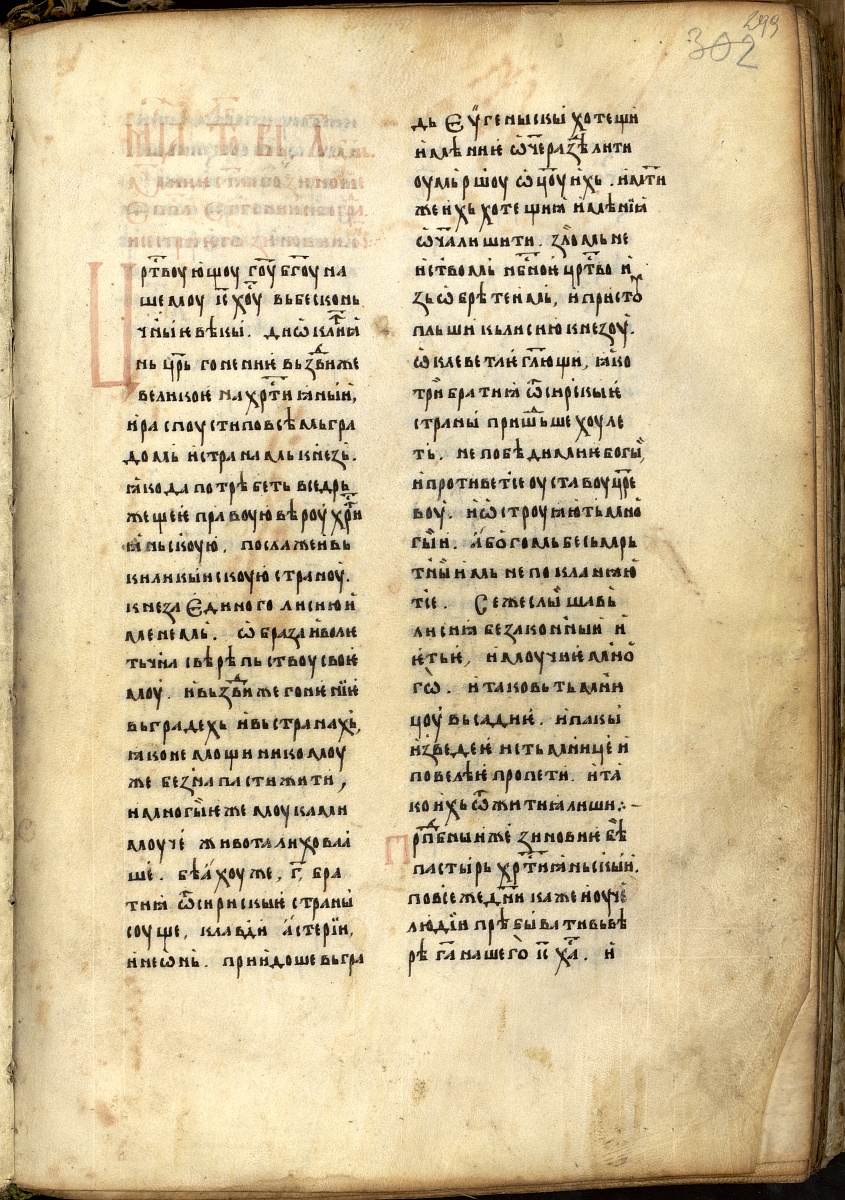 299
302
рт҃воующоу гоу҃ бг҃оу на
шемоу іс҃ хоу҃ вьбесконь
чныѥ вѣкы. диѡкли҃тиꙗ
нь цр҃ь гонениѥ вьздвиже
великоѥ на хр҃тиꙗныи,
и распоусти по всѣмь гра
домь и странамь кнезь.
ꙗко да потрѣбеть все дрь
жещеѥ правоую вѣроу хр҃ти
ꙗньскоую, послаже и вь
киликыискоую страноу.
кнеза ѥдиного лисию и
менемь. ѡбраза и воли
тьчна сверѣпьствоу своѥ
моу. и вьздвиже гонениѥ
вь градехь и вь странахь,
ꙗко не мощи никомоу
же без напасти жити,
и многыѥ же моуками
моуче живота лиховаа
ше. бѣахоу же, г҃, бра
тиꙗ ѿ сирискыѥ страны
соуще, клавди астерїи,
и неѡнь. приидоше вь гра
дь Еѵгеныскы хотещи
имѣниѥ ѡч҃е раздѣлити
оумьршоу ѡц҃оу ихь. и мт҃и
же ихь хотещиꙗ имѣнїꙗ
ѡч҃а лишити. зломь не
иствомь нбⷭ҇ноѥ црⷭ҇тво и
зьѡбрѣте имь, и присто
пльши кь лисию кнезоу.
ѡклеветаѥ гл҃ющи, ꙗко
три братиꙗ ѿ сирскыѥ
страны пришⷣьше хоуле
ть. непобѣдимиѥ богы,
и противетсе оуставоу цр҃е
воу. и ѡстроуꙗють мно
гыи. а богомь бесьмрь
тныимь не покланꙗю
тсе. Се же слышавь
лисиꙗ безаконныи и
ѥть ѥ, и моучиѥ мно
гѡ. и тако вь тьмни
цоу вьсади ѥ. и пакы
изведе ѥ ис тьмнице и
повелѣ ѥ пропети. и та
ко ихь ѿ житиꙗ лиши.:-
рпⷣбныи же зиновиѥ бѣ
пастырь хр҃тиꙗньскыи.
по все же дн҃и каже и оуче
людїи прѣбывати вь вѣ
рѣ га҃ нашего іс҃ ха҃. и